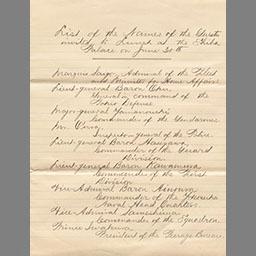 List of the Names of the Guests
invited to Lunch at the Shiba
Palace on June 30th
Marquis Saigo, Admiral of the Fleet
and Minister for Home Affairs
Lieut-general Baron Oku
General in command of the
Tokio Defense
Major-general
Commander of the Gendarmes
Mr.
Inspector-general of the Police
Lieut-general Baron Hasegawa
Commander of the Guard
Division
Lieut-general Baron Kawamura
Commander of the First
Division
Vice-Admiral Baron
Commander of the Yokosuka
Naval Head Quarters
Vice-Admiral Samejima
Commander of the Squadron
Prince Iwakura
President of the Peerage Bureau.